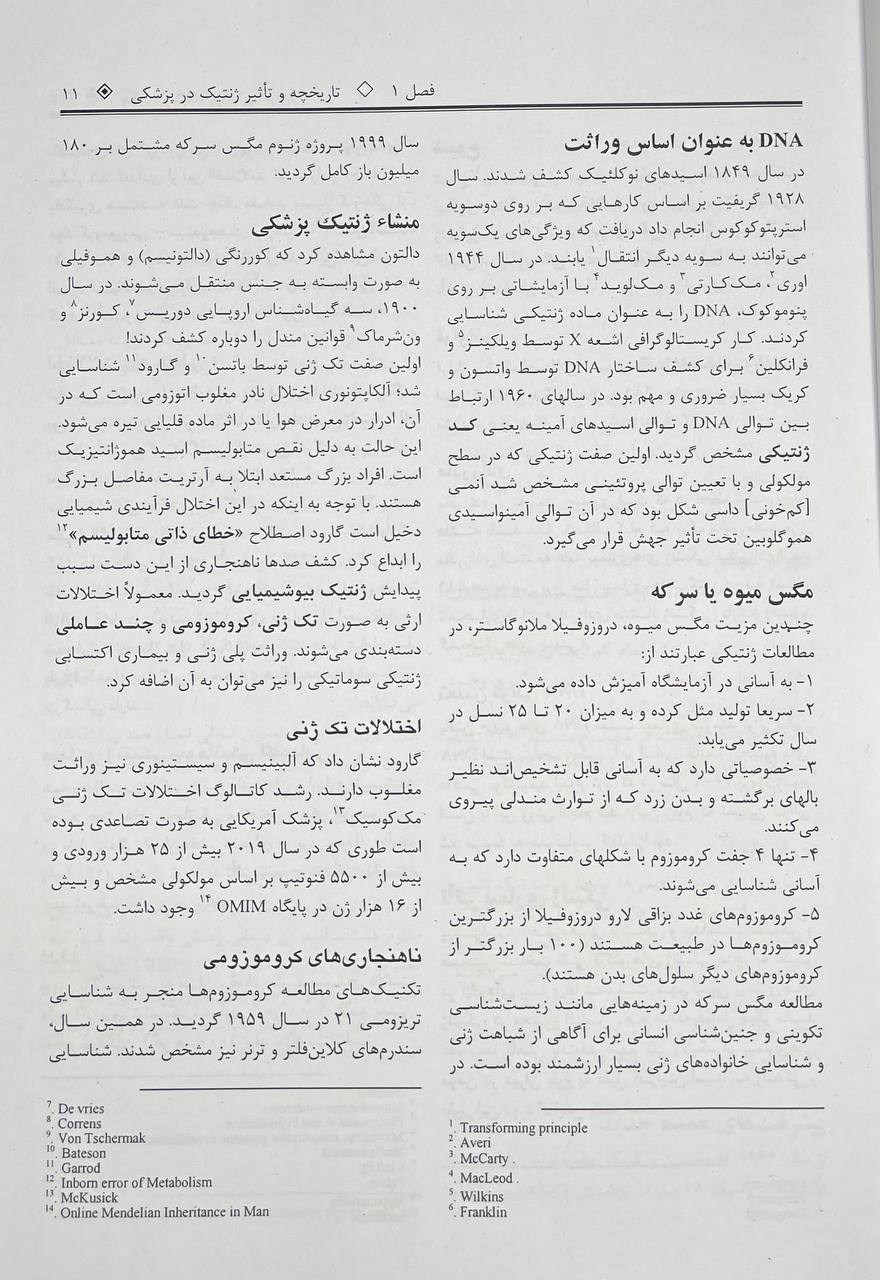 فصل ۱ ◇ تاریخچه و تأثیر ژنتیک در پزشکی ◈ ۱۱
DNA به عنوان اساس وراثت
در سال ۱۸۴۹ اسیدهای نوکلئیک کشف شدند. سال
۱۹۲۸ گریفیت بر اساس کارهایی که بر روی دوسویه
استرپتوکوکوس انجام داد دریافت که ویژگی‌های یک‌سویه
می‌توانند به سویه دیگر انتقال۱ یابند. در سال ۱۹۴۴
اوری۲، مک‌کارتی۳ و مک‌لوید۴ با آزمایشاتی بر روی
پنوموکوک، DNA را به عنوان ماده ژنتیکی شناسایی
کردند. کار کریستالوگرافی اشعه X توسط ویلکینز۵ و
فرانکلین۶ برای کشف ساختار DNA توسط واتسون و
کریک بسیار ضروری و مهم بود. در سالهای ۱۹۶۰ ارتباط
بین توالی DNA و توالی اسیدهای آمینه یعنی کد
ژنتیکی مشخص گردید. اولین صفت ژنتیکی که در سطح
مولکولی و با تعیین توالی پروتئینی مشخص شد آنمی
[کم‌خونی] داسی شکل بود که در آن توالی آمینواسیدی
هموگلوبین تحت تأثیر جهش قرار می‌گیرد.
مگس میوه یا سرکه
چندین مزیت مگس میوه، دروزوفیلا ملانوگاستر، در
مطالعات ژنتیکی عبارتند از:
۱- به آسانی در آزمایشگاه آمیزش داده می‌شود.
۲- سریعا تولید مثل کرده و به میزان ۲۰ تا ۲۵ نسل در
سال تکثیر می‌یابد.
۳- خصوصیاتی دارد که به آسانی قابل تشخیص‌اند نظیر
بالهای برگشته و بدن زرد که از توارث مندلی پیروی
می‌کنند.
۴- تنها ۴ جفت کروموزوم با شکلهای متفاوت دارد که به
آسانی شناسایی می‌شوند.
۵- کروموزوم‌های غدد بزاقی لارو دروزوفیلا از بزرگترین
کروموزوم‌ها در طبیعت هستند (۱۰۰ بار بزرگتر از
کروموزوم‌های دیگر سلول‌های بدن هستند).
مطالعه مگس سرکه در زمینه‌هایی مانند زیست‌شناسی
تکوینی و جنین‌شناسی انسانی برای آگاهی از شباهت ژنی
و شناسایی خانواده‌های ژنی بسیار ارزشمند بوده است. در
1. Transforming principle
2. Averi
3. McCarty .
4. MacLeod .
5. Wilkins
6. Franklin
سال ۱۹۹۹ پروژه ژنوم مگس سرکه مشتمل بر ۱۸۰
میلیون باز کامل گردید.
منشاء ژنتیک پزشکی
دالتون مشاهده کرد که کوررنگی (دالتونیسم) و هموفیلی
به صورت وابسته به جنس منتقل می‌شوند. در سال
۱۹۰۰، سه گیاه‌شناس اروپایی دوریس۷، کورنز۸ و
ون‌شرماک۹ قوانین مندل را دوباره کشف کردند!
اولین صفت تک ژنی توسط باتسن۱۰ و گارود۱۱ شناسایی
شد؛ آلکاپتونوری اختلال نادر مغلوب اتوزومی است که در
آن، ادرار در معرض هوا یا در اثر ماده قلیایی تیره می‌شود.
این حالت به دلیل نقص متابولیسم اسید هموژانتیزیک
است. افراد بزرگ مستعد ابتلا به آرتریت مفاصل بزرگ
هستند. با توجه به اینکه در این اختلال فرآیندی شیمیایی
دخیل است گارود اصطلاح «خطای ذاتی متابولیسم»۱۲
را ابداع کرد. کشف صدها ناهنجاری از این دست سبب
پیدایش ژنتیک بیوشیمیایی گردید. معمولاً اختلالات
ارثی به صورت تک ژنی، کروموزومی و چند عاملی
دسته‌بندی می‌شوند. وراثت پلی ژنی و بیماری اکتسابی
ژنتیکی سوماتیکی را نیز می‌توان به آن اضافه کرد.
اختلالات تک ژنی
گارود نشان داد که آلبینیسم و سیستینوری نیز وراثت
مغلوب دارند. رشد کاتالوگ اختلالات تک ژنی
مک‌کوسیک۱۳، پزشک آمریکایی به صورت تصاعدی بوده
است طوری که در سال ۲۰۱۹ بیش از ۲۵ هزار ورودی و
بیش از ۵۵۰۰ فنوتیپ بر اساس مولکولی مشخص و بیش
از ۱۶ هزار ژن در پایگاه OMIM ۱۴ وجود داشت.
ناهنجاری‌های کروموزومی
تکنیک‌های مطالعه کروموزوم‌ها منجر به شناسایی
تریزومی ۲۱ در سال ۱۹۵۹ گردید. در همین سال،
سندرم‌های کلاین‌فلتر و ترنر نیز مشخص شدند. شناسایی
7. De vries
8. Correns
9. Von Tschermak
10. Bateson
11. Garrod
12. Inborn error of Metabolism
13. McKusick
14. Online Mendelian Inheritance in Man